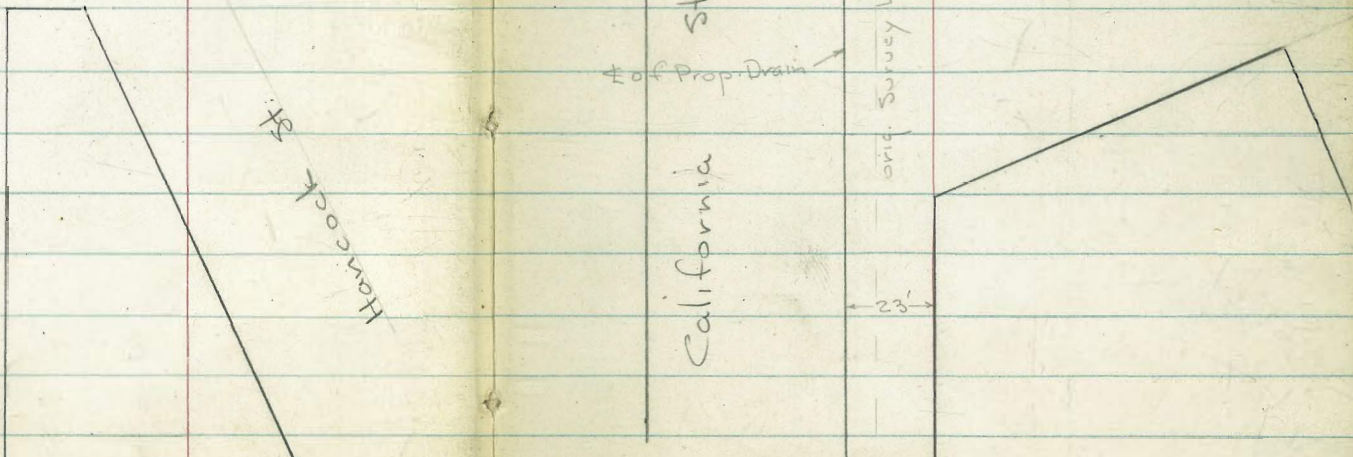 Hancock St.
California St
℄ of Prop. Drain
orig. Survey
23'